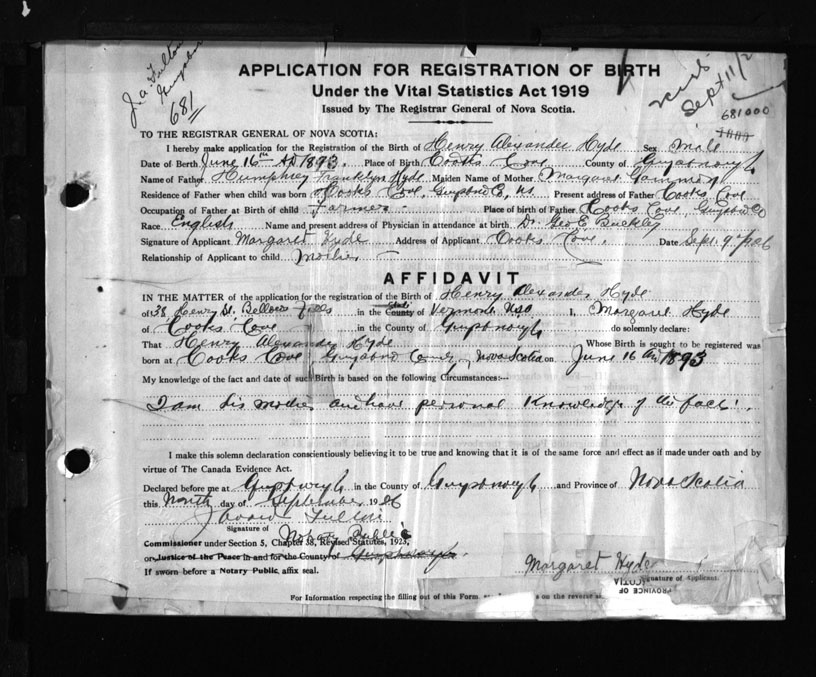 J. A. Fulton
Guysboro
681
Sept 11/2
681000
APPLICATION FOR REGISTRATION OF BIRTH
Under the Vital Statistics Act 1919
Issued by The Registrar General of Nova Scotia.
TO THE REGISTRAR GENERAL OF NOVA SCOTIA:
I hereby make application for the Registration of the Birth of Henry Alexander Hyde Sex Male
Date of Berth June 16th AD 1893. Place of Birth Cooks Cove County of Guysborough
Name of Father Humphrey Franklyn Hyde Maiden Name of Mother Margaret
Residence of Father when child was born Cooks Cove, Guysboro Co, NS Present address of Father Cooks Cove
Occupation of Father at Birth of child Farmer Place of birth of Father Cooks Cove, Guysboro Co
Race English Name and present address of Physician in attendance at birth Dr. Geo E Buckley
Signature of Applicant Margaret Hyde Address of Applicant Cooks Cove. Date Sept. 9th 1926
Relationship of Applicant to child Mother
AFFIDAVIT
IN THE MATTER of the application for the registration of the Birth of Henry Alexander Hyde
of 38 Henry St. Bellows Falls in the County State of Vermont USA I, Margaret Hyde
of Cooks Cove in the County of Guysborough do solemnly declare:
That Henry Alexander Hyde Whose Birth is sought to be registered was
born at Cooks Cove Guysboro County, Nova Scotia on June 16 AD 1893
My knowledge of the fact and date of such Birth is based on the following Circumstances:—
I am his mother and have personal Knowledge of the facts.
I make this solemn declaration conscientiously believing it to be true and knowing that it is of the same force and effect as if made under oath and by
virtue of The Canada Evidence Act.
Declared before me at Guysborough in the County of Guysborough and Province of Nova Scotia
this Ninth day of September 1926
Fulton
Signature of
Notary Public
Commissioner under Section 5, Chapter 38, Revised Statutes, 1923,
or Justice of the Peace in and for the County of Guysborough
Margaret Hyde
Signature of Applicant.
If sworn before a Notary Public affix seal.
PROVINCE OF
SCOTIA
For Information respecting the filling out of this Form, s on the reverse